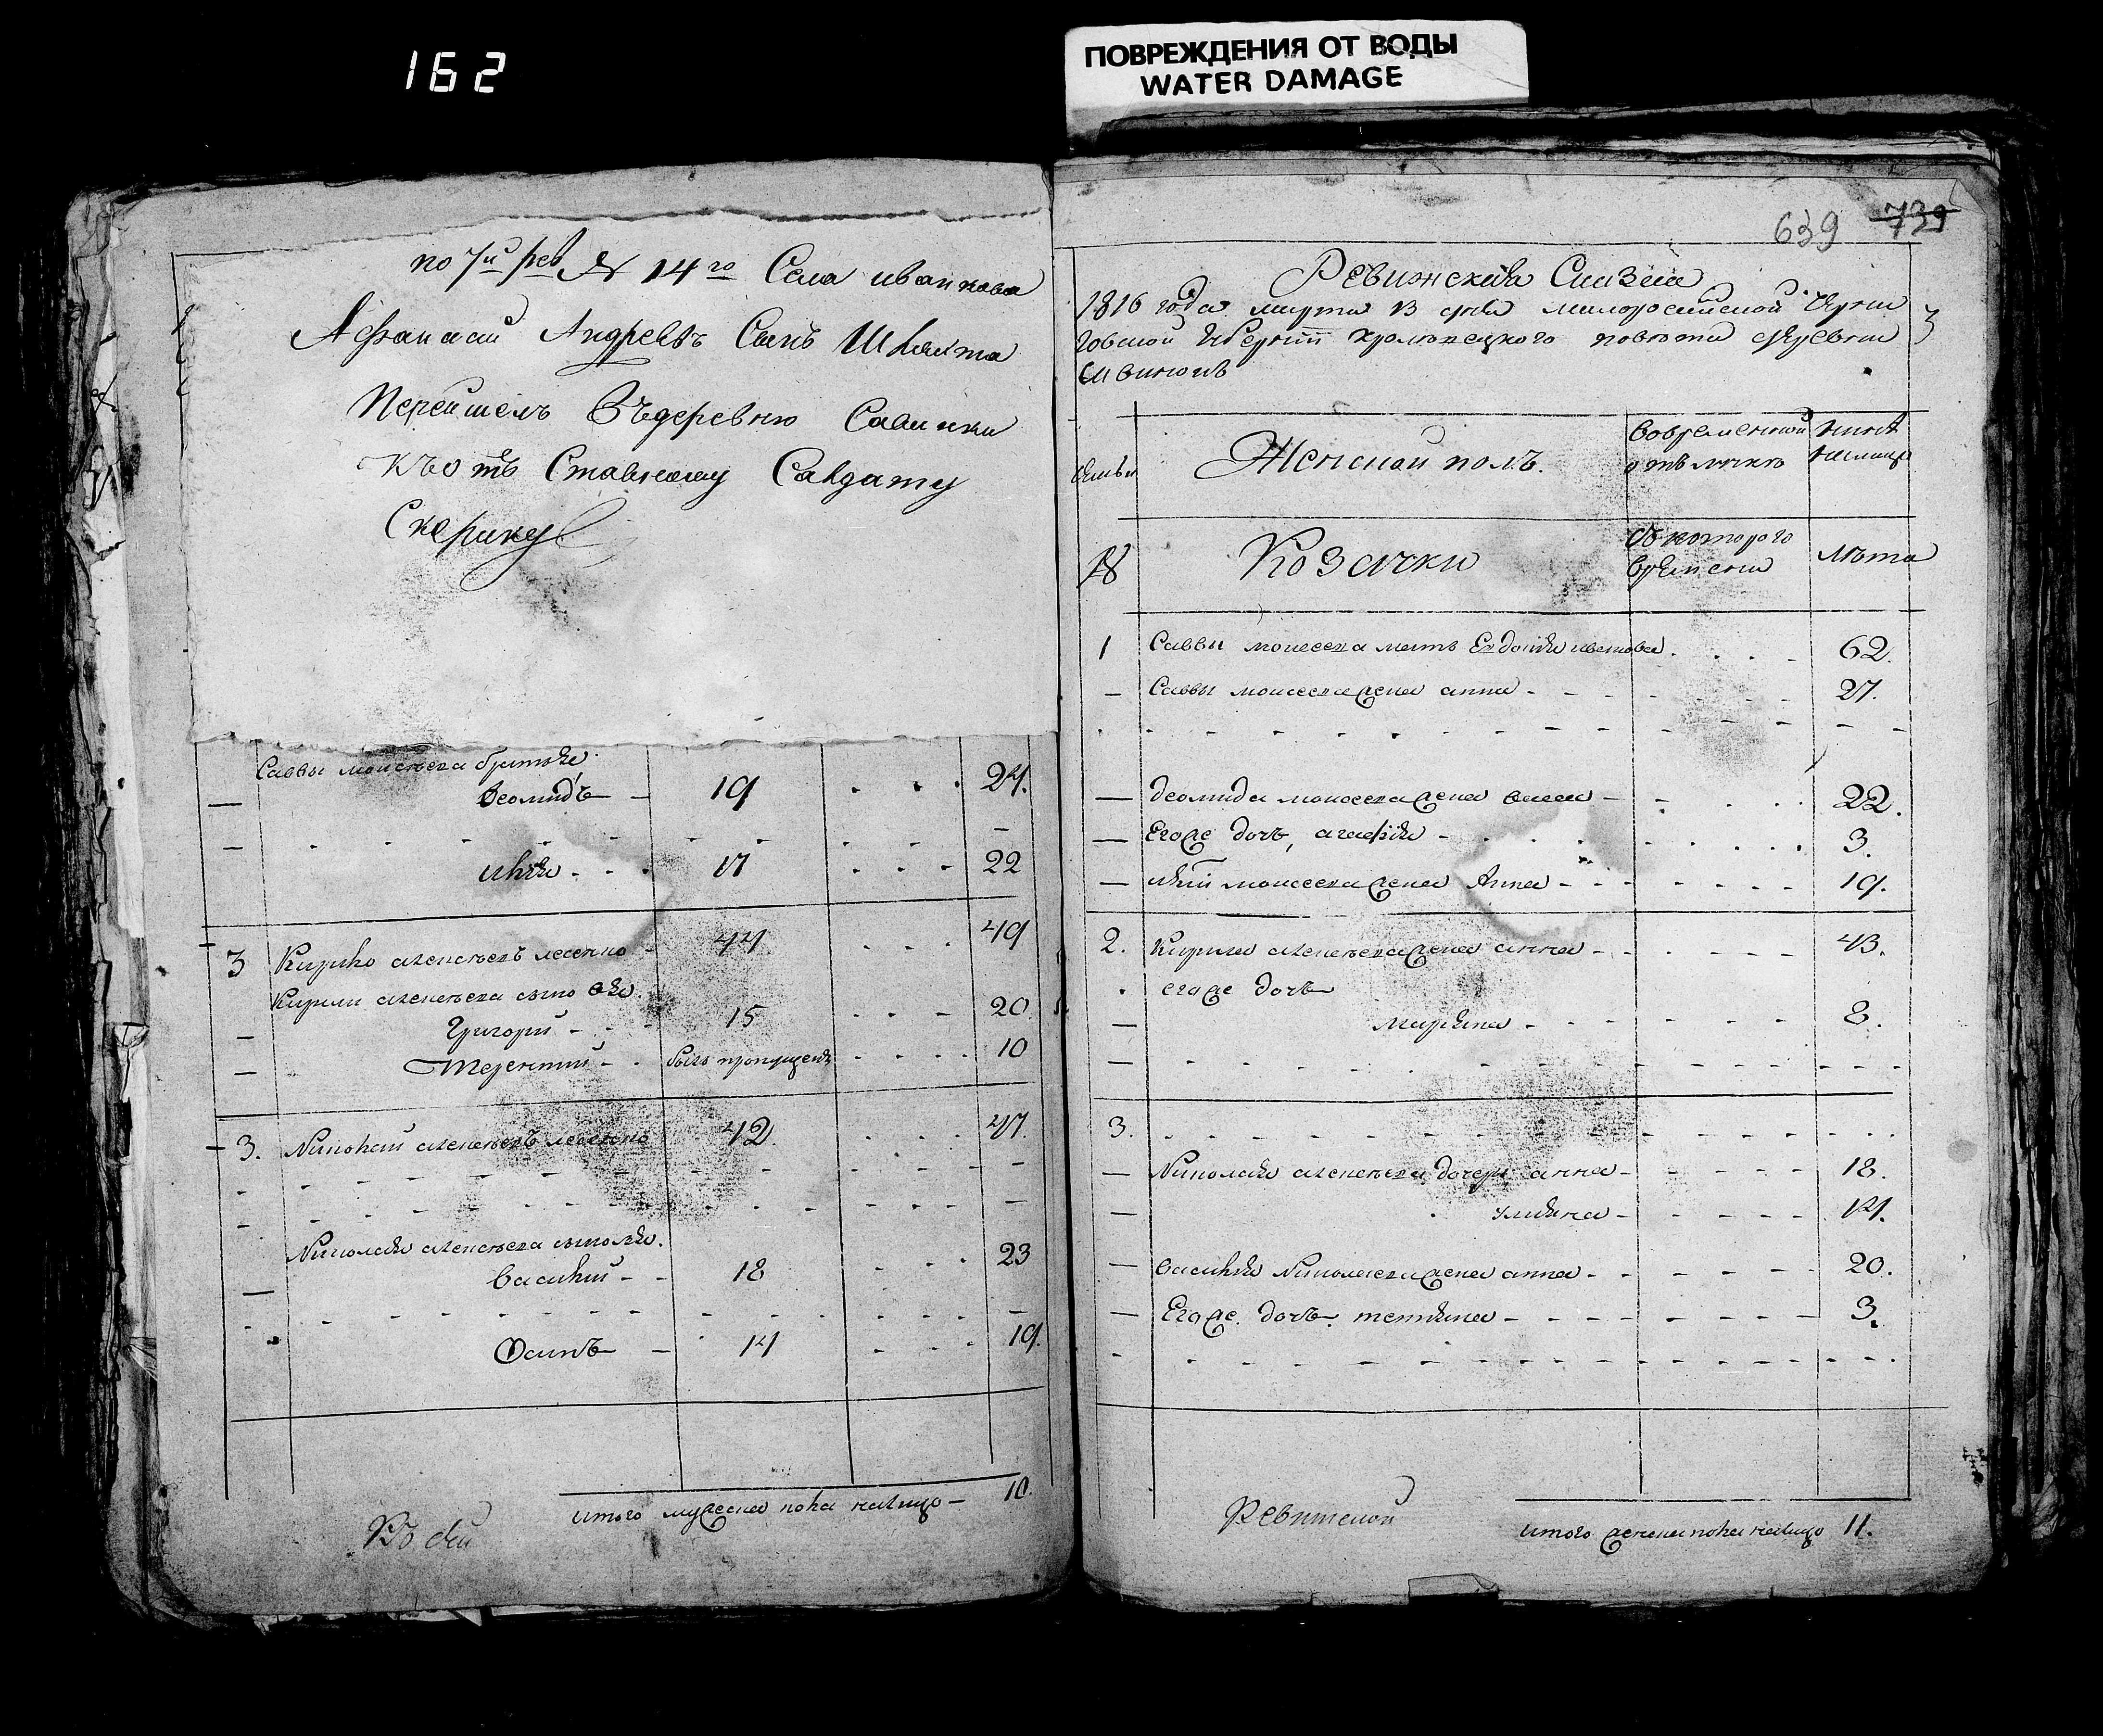 162
ПОВРЕЖДЕНИЯ ОТ ВОДЫ
WATER DAMAGE
по 7й рев № 14го Села иванкова
Афанасий Андреевъ Сынъ Шкляхта
Перейшелъ Въдеревню Савинки
къ отъ Ставному Салдату
Скерику
Саввы моисеева братья
Деомидъ - 19 . . . 24.
илья - - . 17 . . . - 22
3 Кирило алексеевъ - 44 . . . 49
Кирила алексеева сыно вья
Григорий - - - 15 . . . - 20
Терентий - . былъ пропущенъ . . . . 10
3. Николай алексеевъ 42. . . . . 47.
Николая алексеева сыновья.
Василий - - 18 - . . 23
Осипъ - 14 - - . 19.
итого мужеска пола налицо - 10.
639 739
Ревижская Сказка
1816 года марта 13 дня малоросийской Черни
говской Губернии кролевецкого повета деревни
Женской полъ.
вовременной отлучке
ныне налицо
семьи
№
Козачки
Съ которого времени
лета
1 Саввы моисеева мать Евдокия . . . - 62.
- Саввы моисеева жена анна - - - - 27.
- деомида моисеева жена - - . . . 22.
- Егоже дочь, агафия - . . . . . 3.
- илии моисеева жена Анна - - - - 19.
2. Кирила алексеева жена анна - - . - - - 43.
. егоже дочь
- марина - - - - - - 8.
3.
- Николая алексеева дочери анна - - - - - 18.
- улияна - - - - - 14.
- василия николаева жена анна - - - - - 20.
- Егоже. дочь. татияна - - - - - - 3.
Ревижской
итого женска пола налицо 11.